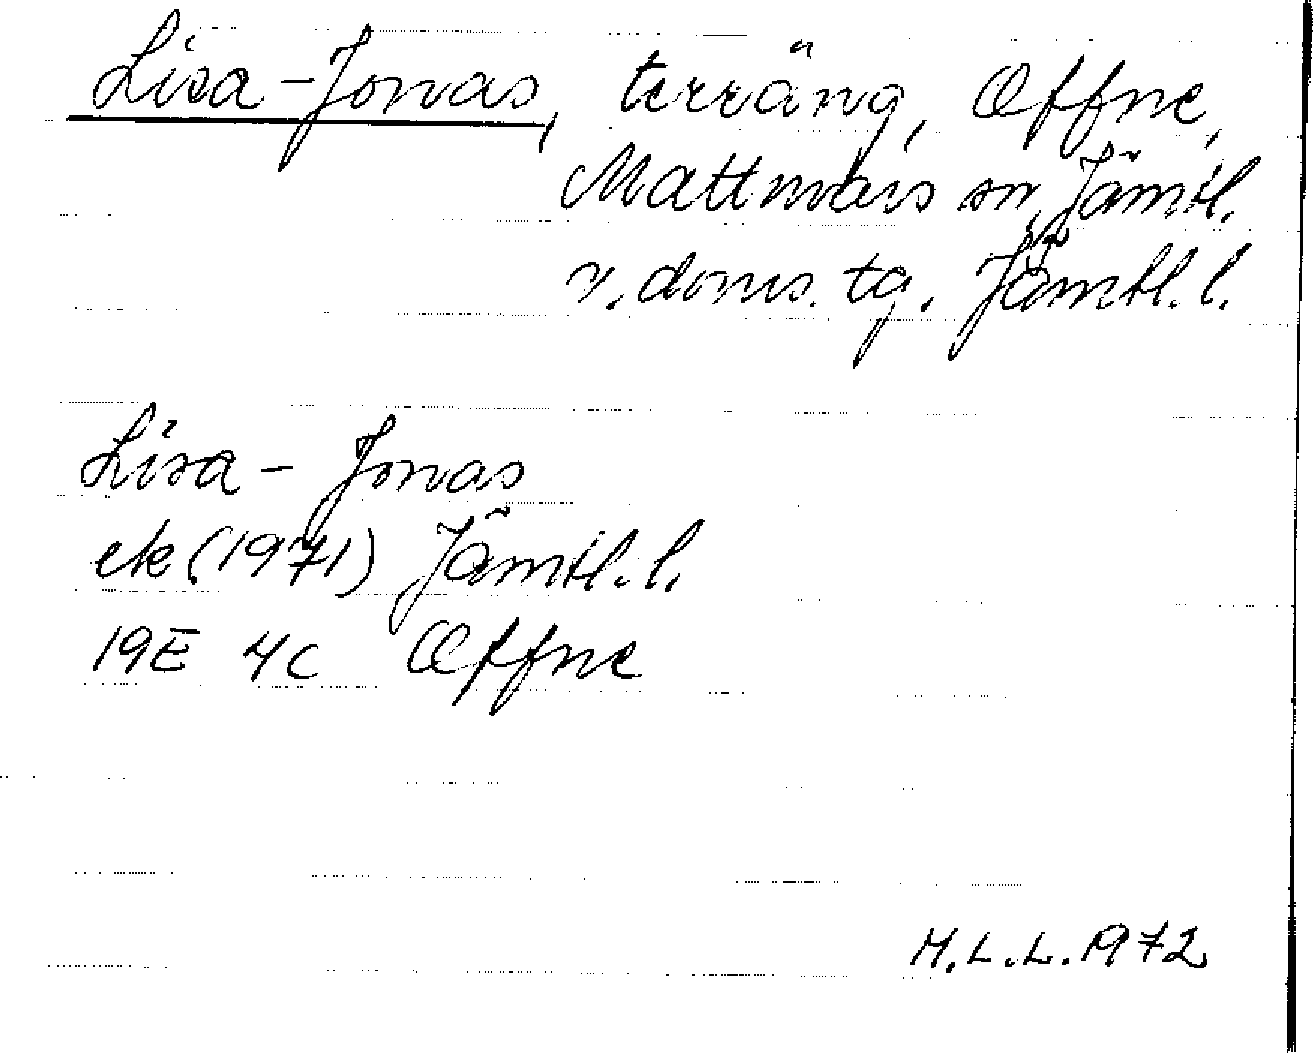 Lisa-Jonas, terräng, Offne,
Mattmars sn, Jämtl.
v. doms. tg. Jämtl. l.
Lisa-Jonas
ek (1971) Jämtl. l.
19E 4c Offne
M.L.L. 1972